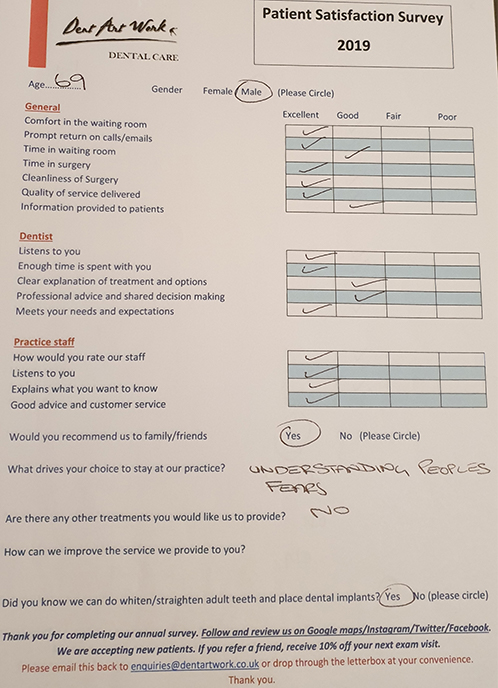 Dent Art Work
DENTAL CARE
Patient Satisfaction Survey
2019
Age 69
Gender Female Male (Please Circle)
General
Excellent Good Fair Poor
Comfort in the waiting room
Prompt return on calls/emails
Time in waiting room
Time in surgery
Cleanliness of Surgery
Quality of service delivered
Information provided to patients
Dentist
Listens to you
Enough time is spent with you
Clear explanation of treatment and options
Professional advice and shared decision making
Meets your needs and expectations
Practice staff
How would you rate our staff
Listens to you
Explains what you want to know
Good advice and customer service
Would you recommend us to family/friends Yes No (Please Circle)
What drives your choice to stay at our practice? UNDERSTANDING PEOPLES
FEARS
Are there any other treatments you would like us to provide? NO
How can we improve the service we provide to you?
Did you know we can do whiten/straighten adult teeth and place dental implants? Yes No (please circle)
Thank you for completing our annual survey. Follow and review us on Google maps/Instagram/Twitter/Facebook.
We are accepting new patients. If you refer a friend, receive 10% off your next exam visit.
Please email this back to enquiries@dentartwork.co.uk or drop through the letterbox at your convenience.
Thank you.